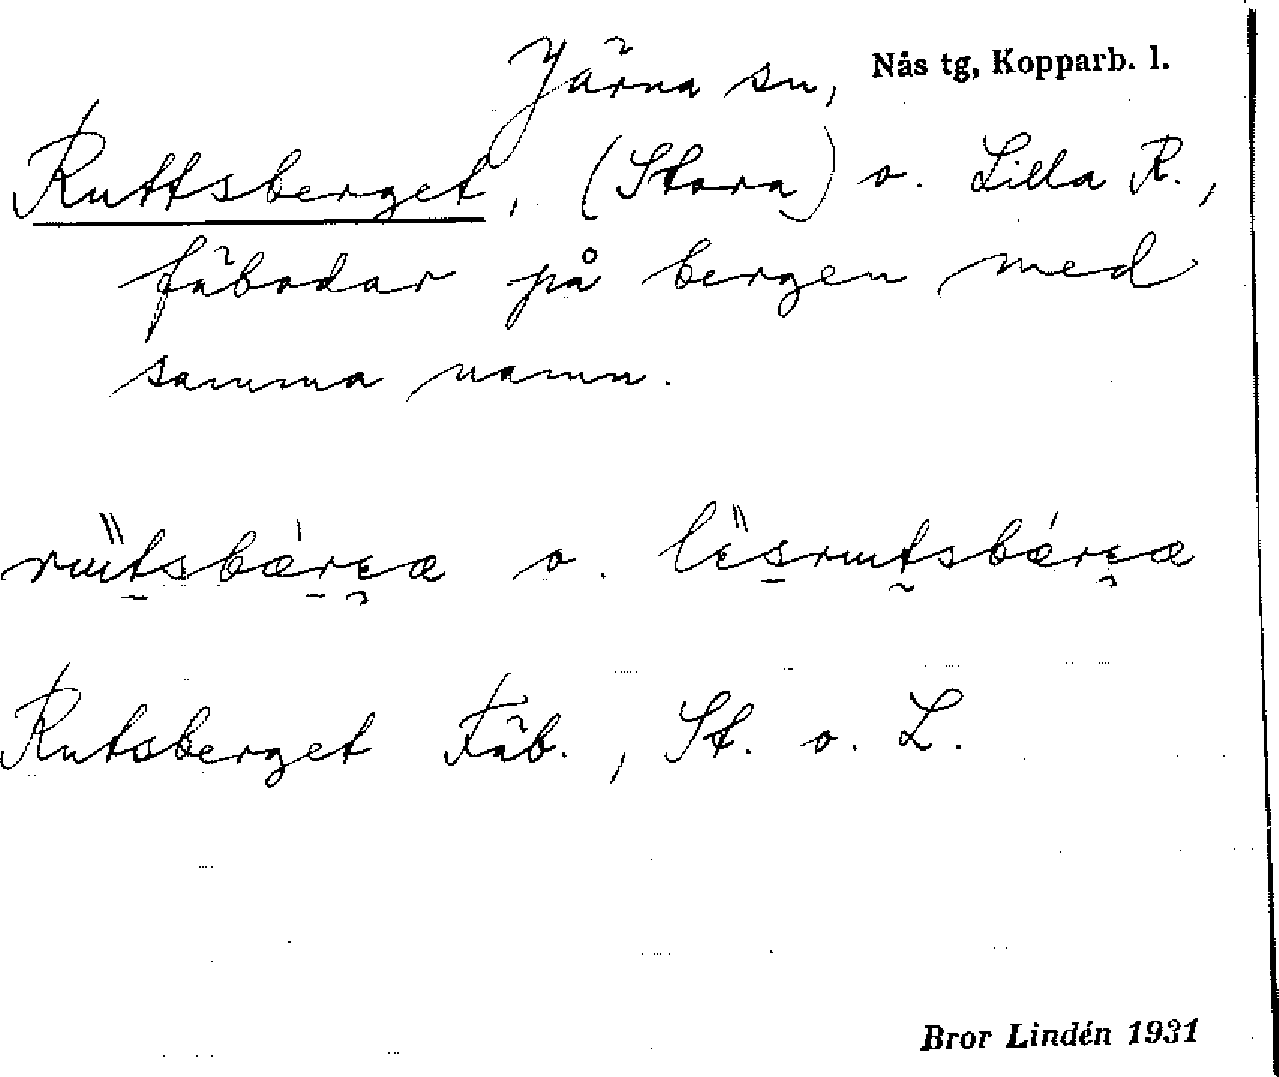 Järna sn, Nås tg, Kopparb. l.
Ruttsberget, (Stora) o. Lilla R.,
fäbodar på bergen med
samma namn.
o.
Rutsberget Fäb., St. o. L.
Bror Lindén 1931